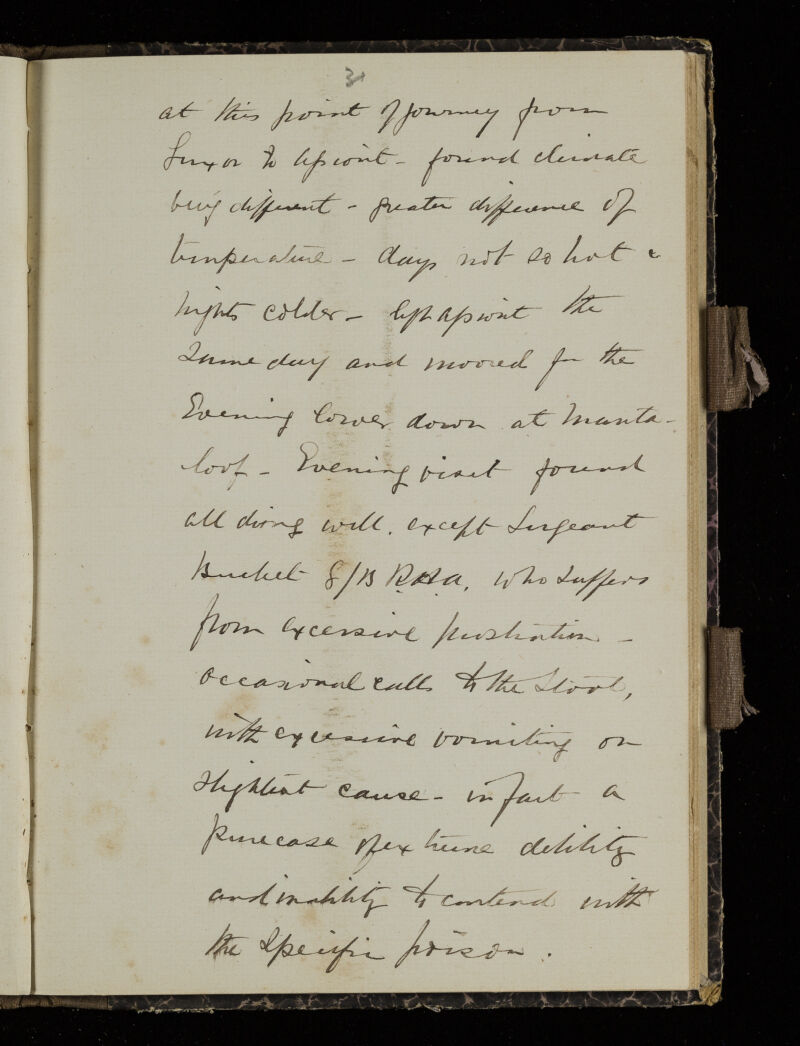 31
at this point of journey from
Luxor to Assiout - found climate
being different - greater difference of
temperature - days not so hot &
nights colder - left Assiout the
same day and moored for the
Evening lower down at Manta-
loof - Evening visit found
all doing well. except Sergeant
Bucket 8/B R.H.A. who suffers
from excessive prostration -
occasional calls to the stool,
with excessive vomiting on
slightest cause - in fact a
pure case of extreme debility
and inability to contend with
the specific poison.